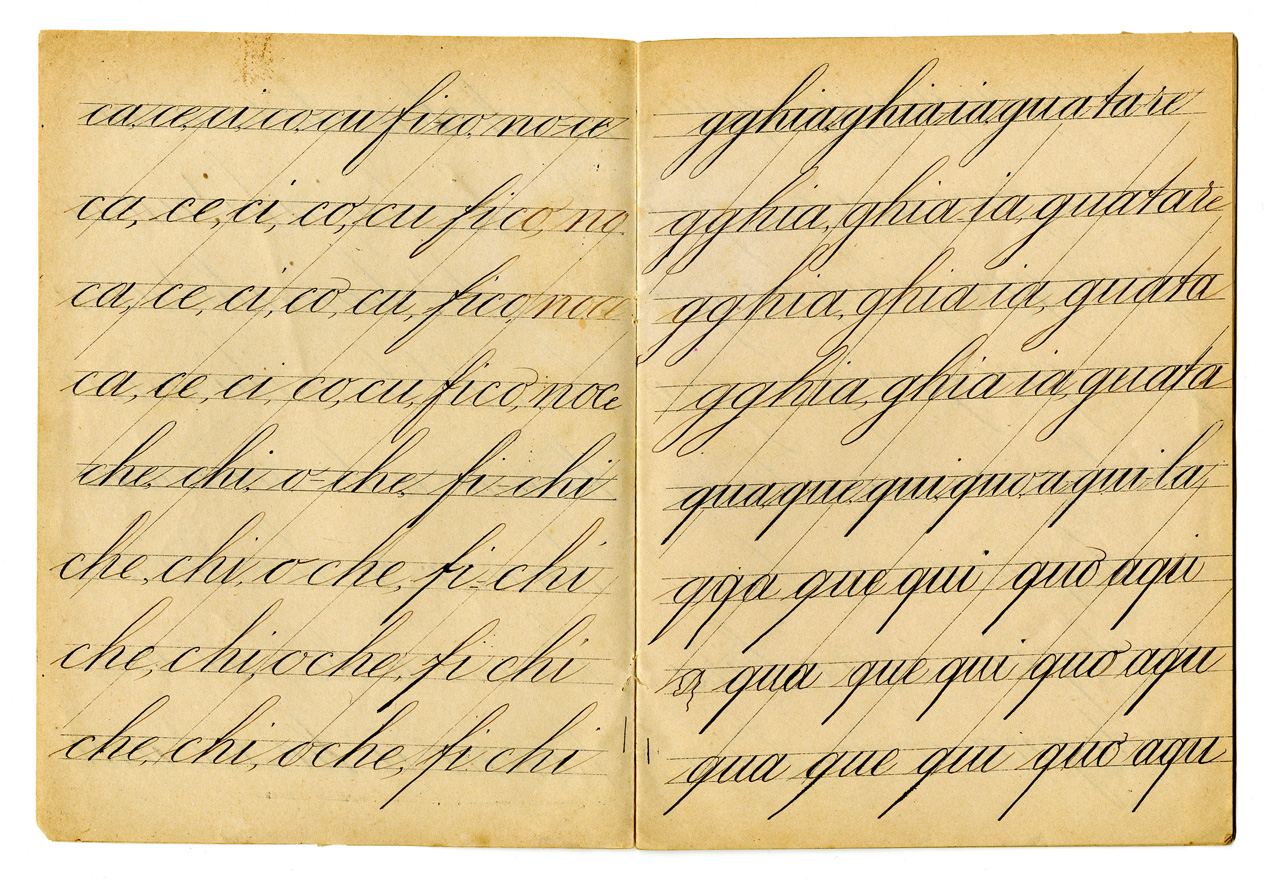 ca, ce, ci, co, cu fi-co, no-ce
ca, ce, ci, co, cu fico, no
ca, ce, ci, co, cu, fico, noce
ca, ce, ci, co, cu, fico, noce
che, chi, o-che, fi-chi
che, chi, o che, fi-chi
che, chi, o che, fi chi
che, chi, o che, fi chi
gghia, ghia-ia, gua ta re
gghia, ghia ia, guatare
gghia, ghia ia, guata
gghia, ghia ia, guata
qua, que, qui, quo, a qui-la,
qqa que qui quo aqui
qua que qui quo aqu
qua que qui quo aqu